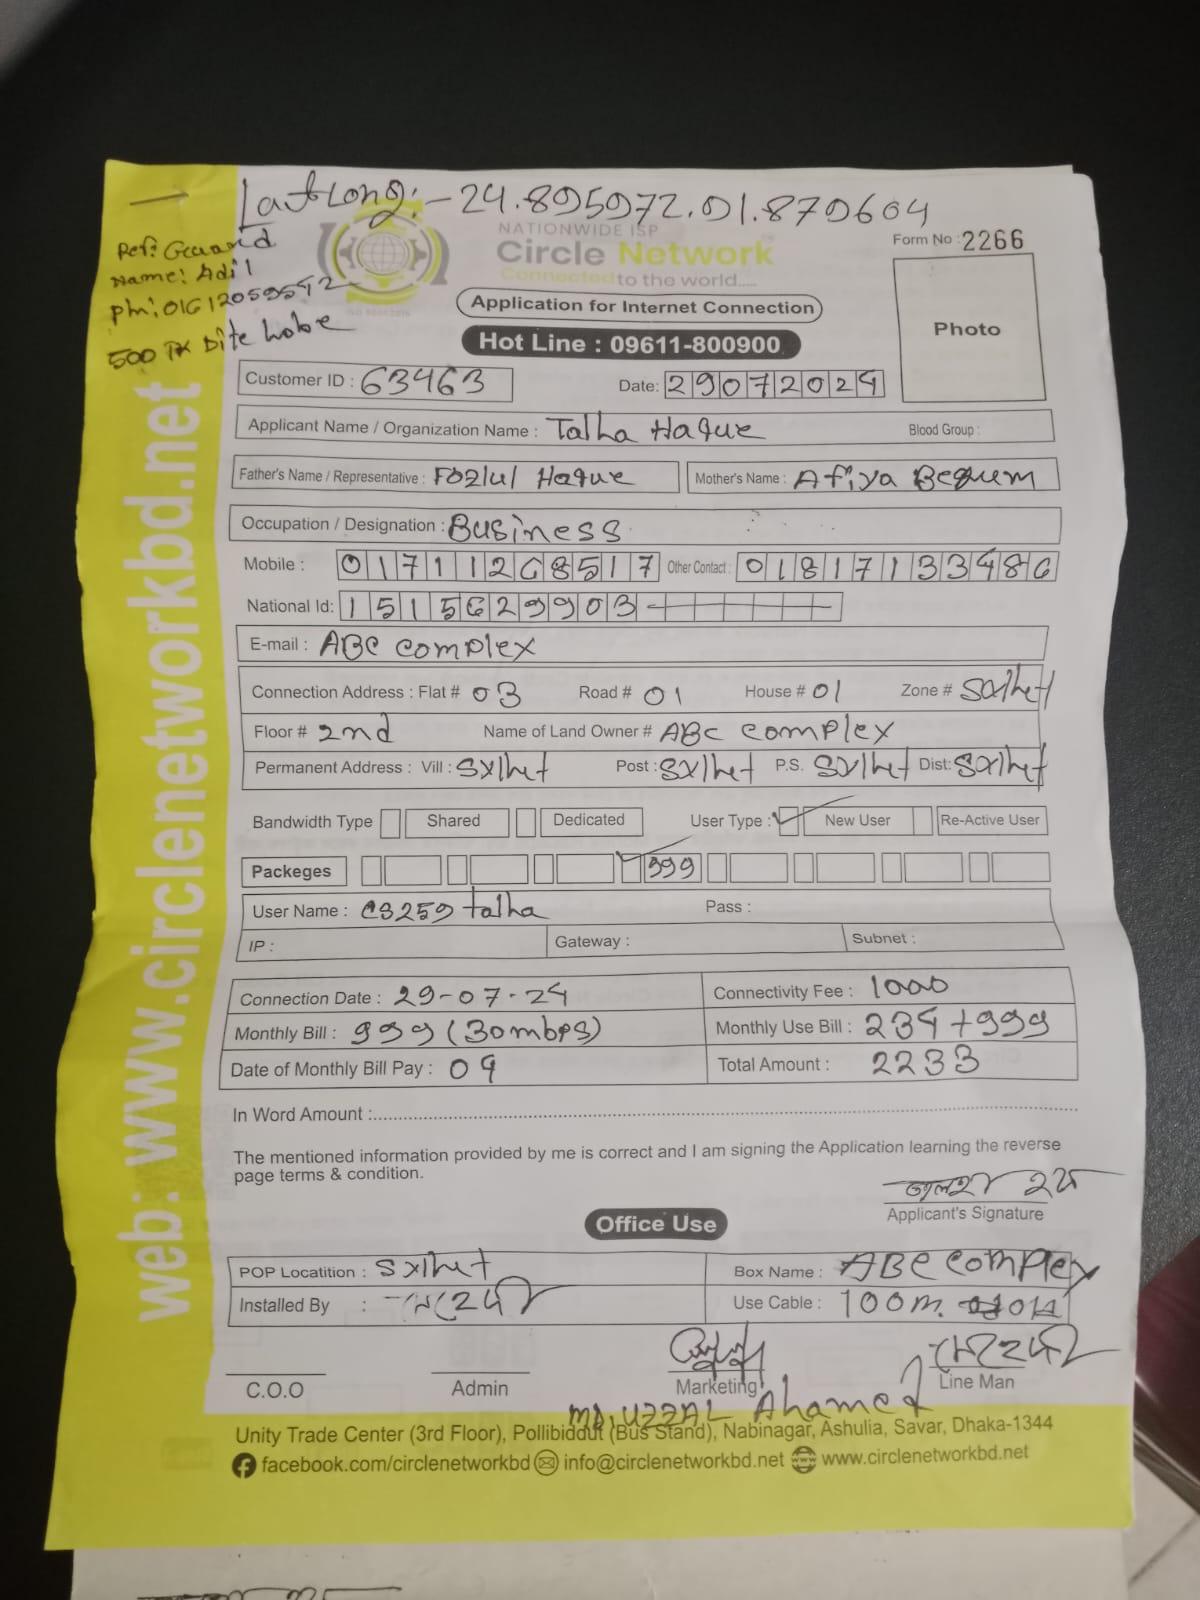 Lat Long:- 24.895972.91.870604
Ref: Guard
Name: Adil
Ph: 01612059572
500 TK Dite hobe
NATIONWIDE ISP
Circle Network
Connected to the world.....
Form No : 2266
Application for Internet Connection
Photo
Hot Line : 09611-800900
Customer ID : 63463
Date: 29072024
Applicant Name / Organization Name : Talha Haque Blood Group :
Father's Name / Representative : Fozlul Haque Mother's Name : Afiya Begum
Occupation / Designation : Business
Mobile : 01711268517 Other Contact : 01817133486
National Id: 1515629903
E-mail : ABC complex
Connection Address : Flat # 03 Road # 01 House # 01 Zone # Sylhet
Floor # 2nd Name of Land Owner # ABC complex
Permanent Address : Vill : Sylhet Post : Sylhet P.S. Sylhet Dist: Sylhet
Bandwidth Type Shared Dedicated User Type : New User Re-Active User
Packeges 999
User Name : CS259talha Pass :
IP : Gateway : Subnet :
Connection Date : 29-07-24 Connectivity Fee : 1000
Monthly Bill : 999 (30mbps) Monthly Use Bill : 234+999
Date of Monthly Bill Pay : 09 Total Amount : 2233
In Word Amount :
The mentioned information provided by me is correct and I am signing the Application learning the reverse
page terms & condition.
তালহা হক
Applicant's Signature
Office Use
POP Locatition : Sylhet Box Name : ABC complex
Installed By : Use Cable : 100m.
C.O.O Admin Marketing Line Man
MD. UZZAL Ahamed
Unity Trade Center (3rd Floor), Pollibiddut (Bus Stand), Nabinagar, Ashulia, Savar, Dhaka-1344
facebook.com/circlenetworkbd info@circlenetworkbd.net www.circlenetworkbd.net
web: www.circlenetworkbd.net